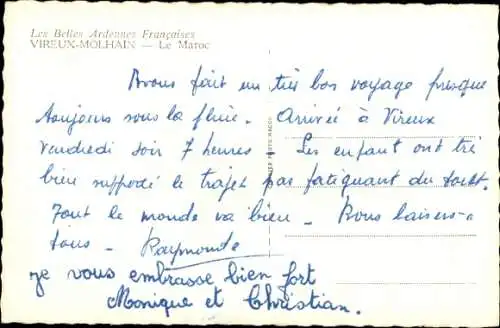 Les Belles Ardennes Françaises
VIREUX-MOLHAIN — Le Maroc
Avons fait un très bon voyage presque
toujours sous la pluie. Arrivée à Vireux
vendredi soir 7 heures. Les enfant ont très
bien supporté le trajet pas fatiguant du tout.
Tout le monde va bien - Bons baisers à
tous - Raymonde
je vous embrasse bien fort
Monique et Christian.